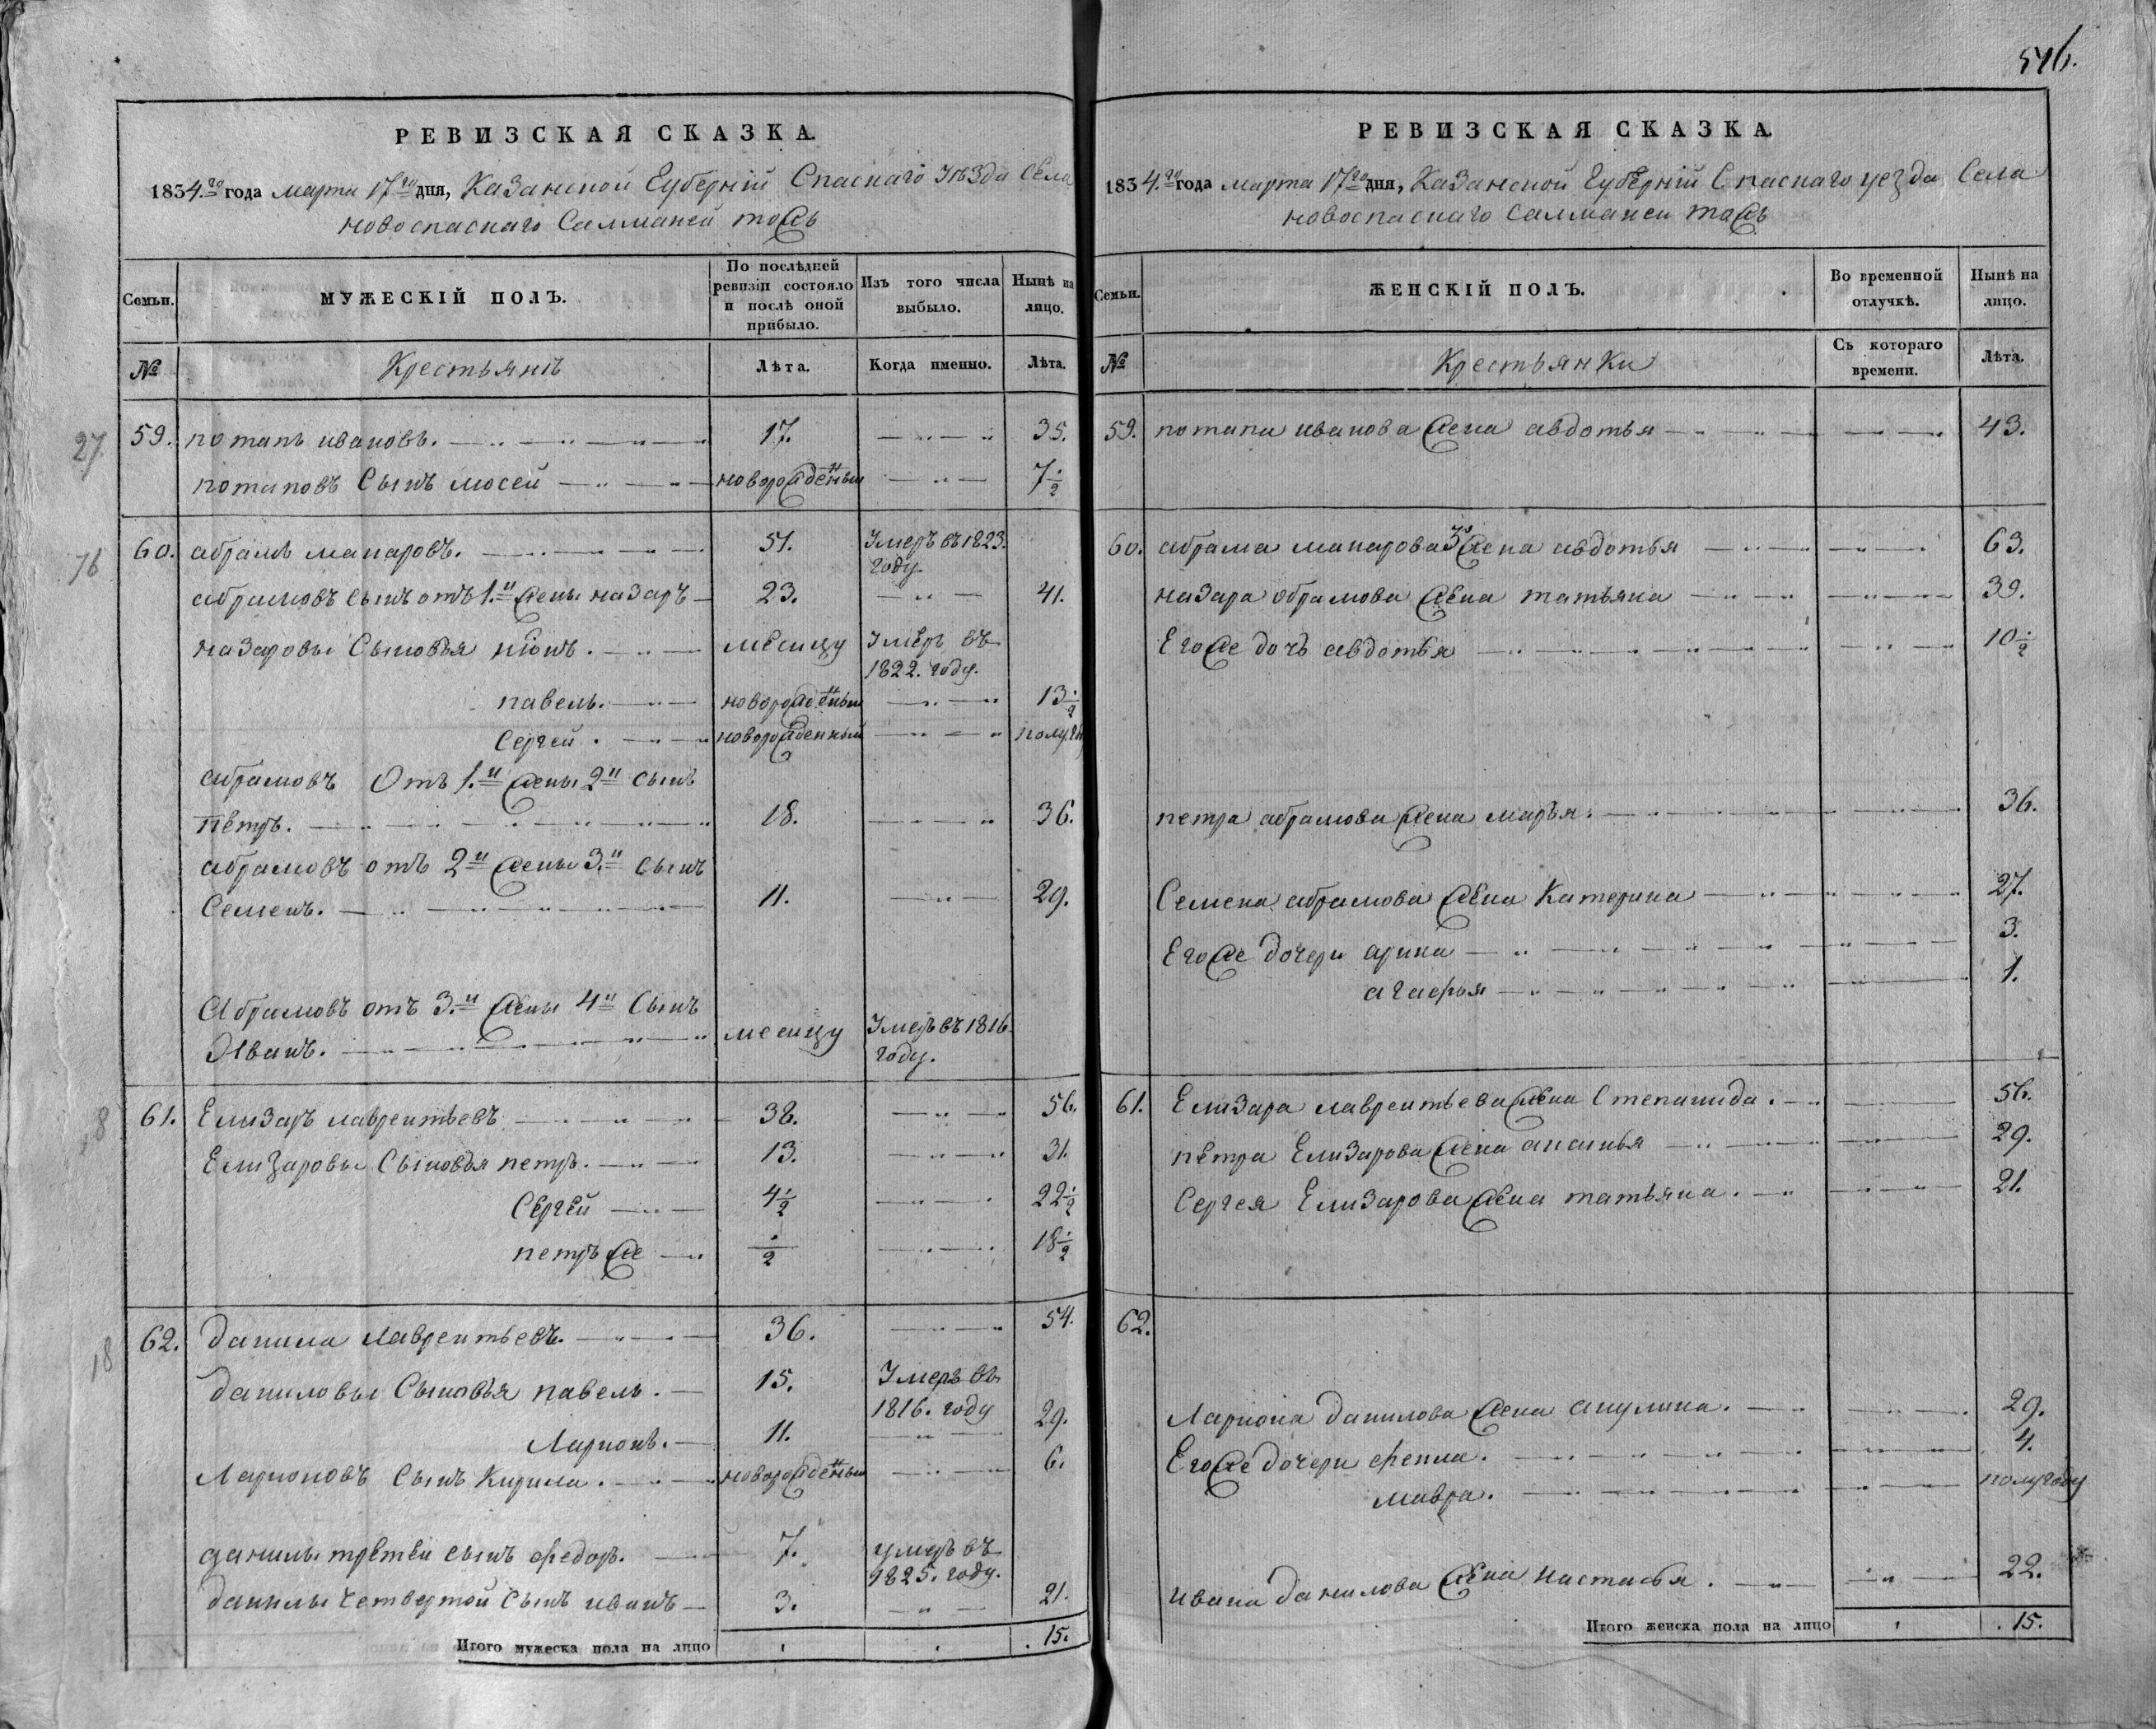 РЕВИЗСКАЯ СКАЗКА.
1834.го года марта 17го дня, Казанской Губерній Спаскаго Уѣзда Села
новоспаскаго Салманей тожъ
Семьи.
МУЖЕСКІЙ ПОЛЪ.
По послѣдней ревизіи состояло и послѣ оной прибыло.
Изъ того числа выбыло.
Нынѣ на лицо.
№
Крестьянѣ
Лѣта.
Когда именно.
Лѣта.
27
59. потапъ ивановъ. 17. 35.
потаповъ Сынъ мосей новорожденный 7 1/2
76
60. абрамъ макаровъ. 51. Умеръ въ 1823. году.
абрамовъ сынъ отъ 1.й жены назаръ 23. 41.
назаровы Сыновья месяцу Умеръ въ 1822. году.
павелъ. новорожденный 13 1/2
Сергей. новорожденный полугоду
абрамовъ Отъ 1.й жены 2й сынъ
петръ. 18. 36.
абрамовъ отъ 2й жены 3.й сынъ
Семенъ. 11. 29.
Абрамовъ отъ 3.й жены 4й Сынъ
Иванъ. месяцу Умеръ въ 1816. году.
61. Елизаръ лаврентьевъ 38. 56.
Елизаровы Сыновья петръ. 13. 31.
Сергей 4 1/2 22 1/2
петръ же 1/2 18 1/2
18
62. данила лаврентьевъ. 36. 54.
даниловы Сыновья павелъ. 15. Умеръ въ 1816. году
Ларионъ. 11. 29.
Ларионовъ Сынъ Кирила. новорожденный 6.
данилы третей сынъ федоръ. 7. умеръ въ 1825. году.
данилы четвертой Сынъ иванъ 3. 21.
Итого мужеска пола на лицо . 15.
546.
РЕВИЗСКАЯ СКАЗКА.
1834.го года марта 17го дня, Казанской Губерній Спаскаго уезда Села
новоспаскаго салманеи тожъ
Семьи.
ЖЕНСКІЙ ПОЛЪ.
Во временной отлучкѣ.
Нынѣ на лицо.
№
Крестьянки
Съ котораго времени.
Лѣта.
59. потапа иванова жена авдотья 43.
60. абрама макарова 3я жена авдотья 63.
назара обрамова жена татьяна 39.
Его же дочь авдотья 10 1/2
петра абрамова жена марья. 36.
Семена абрамова жена Катерина 27.
Его же дочери арина 3.
агафья 1.
61. Елизара лаврентьева жена Степанида. 56.
петра Елизарова жена 29.
Сергея Елизарова жена татьяна. 21.
62.
Лариона данилова жена акулина. 29.
Его же дочери фекла. 4.
мавра. полугоду
ивана данилова жена настасья. 22.
Итого женска пола на лицо . 15.